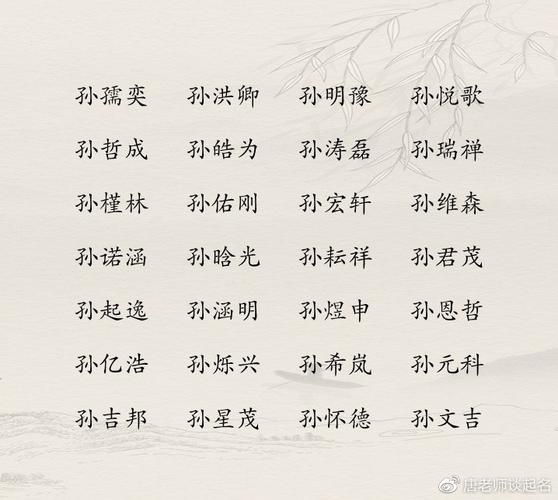 孙孺奕 孙洪卿 孙明豫 孙悦歌
孙哲成 孙皓为 孙涛磊 孙瑞禅
孙槿林 孙佑刚 孙宏轩 孙维森
孙诺涵 孙晗光 孙耘祥 孙君茂
孙起逸 孙涵明 孙煜申 孙恩哲
孙亿浩 孙烁兴 孙希岚 孙元科
孙吉邦 孙星茂 孙怀德 孙文吉
唐老师谈起名